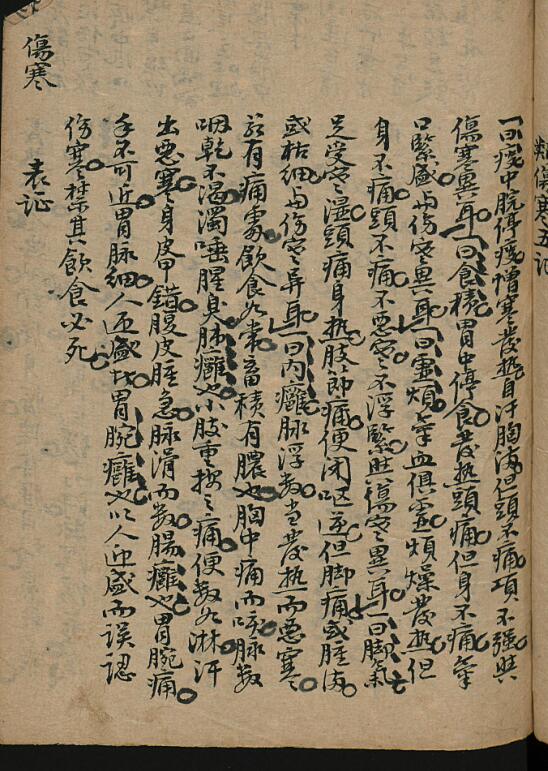 類傷寒五証
一曰痰中脘停痰憎寒發热自汗胸满但頭不痛項不强與
傷寒異耳一曰食積胃中停食發热頭痛但身不痛氣
口緊盛与傷寒異耳一曰虛煩氣血俱虛煩燥發热但
身不痛頭不痛不惡寒不浮緊與傷寒異耳一曰脚氣
足受寒湿頭痛身热肢節痛便闭呕逆但脚痛或腫满
或枯细与傷寒异耳一曰内癰脉浮数当發热而惡寒
若有痛處飲食如常畜積有膿也胸中痛而咳脉数
咽乾不渴濁唾腥臭肺癰也小肢重按之痛便数如淋汗
出惡寒身皮甲錯腹皮腫急脉滑而数腸癰也胃腕痛
手不可近胃脉细人迎盛城胃腕癰也以人迎盛而误認
伤寒禁其飲食必死
表证
傷寒